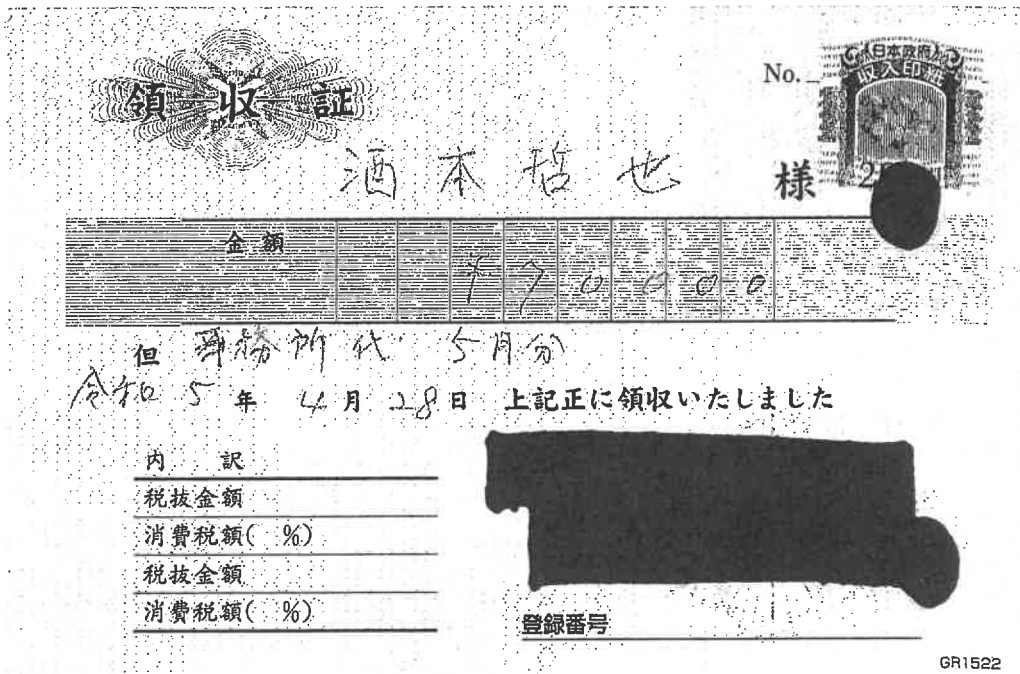 領収証
No.
日本政府
収入印紙
酒本哲也 様
金額 ¥70000
但 事務所代 5月分
令和5年4月28日 上記正に領収いたしました
内訳
税抜金額
消費税額( %)
税抜金額
消費税額( %)
登録番号
GR1522